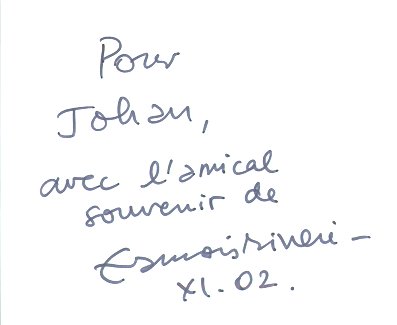 Pour
Johan,
avec l'amical
souvenir de
XI.02.